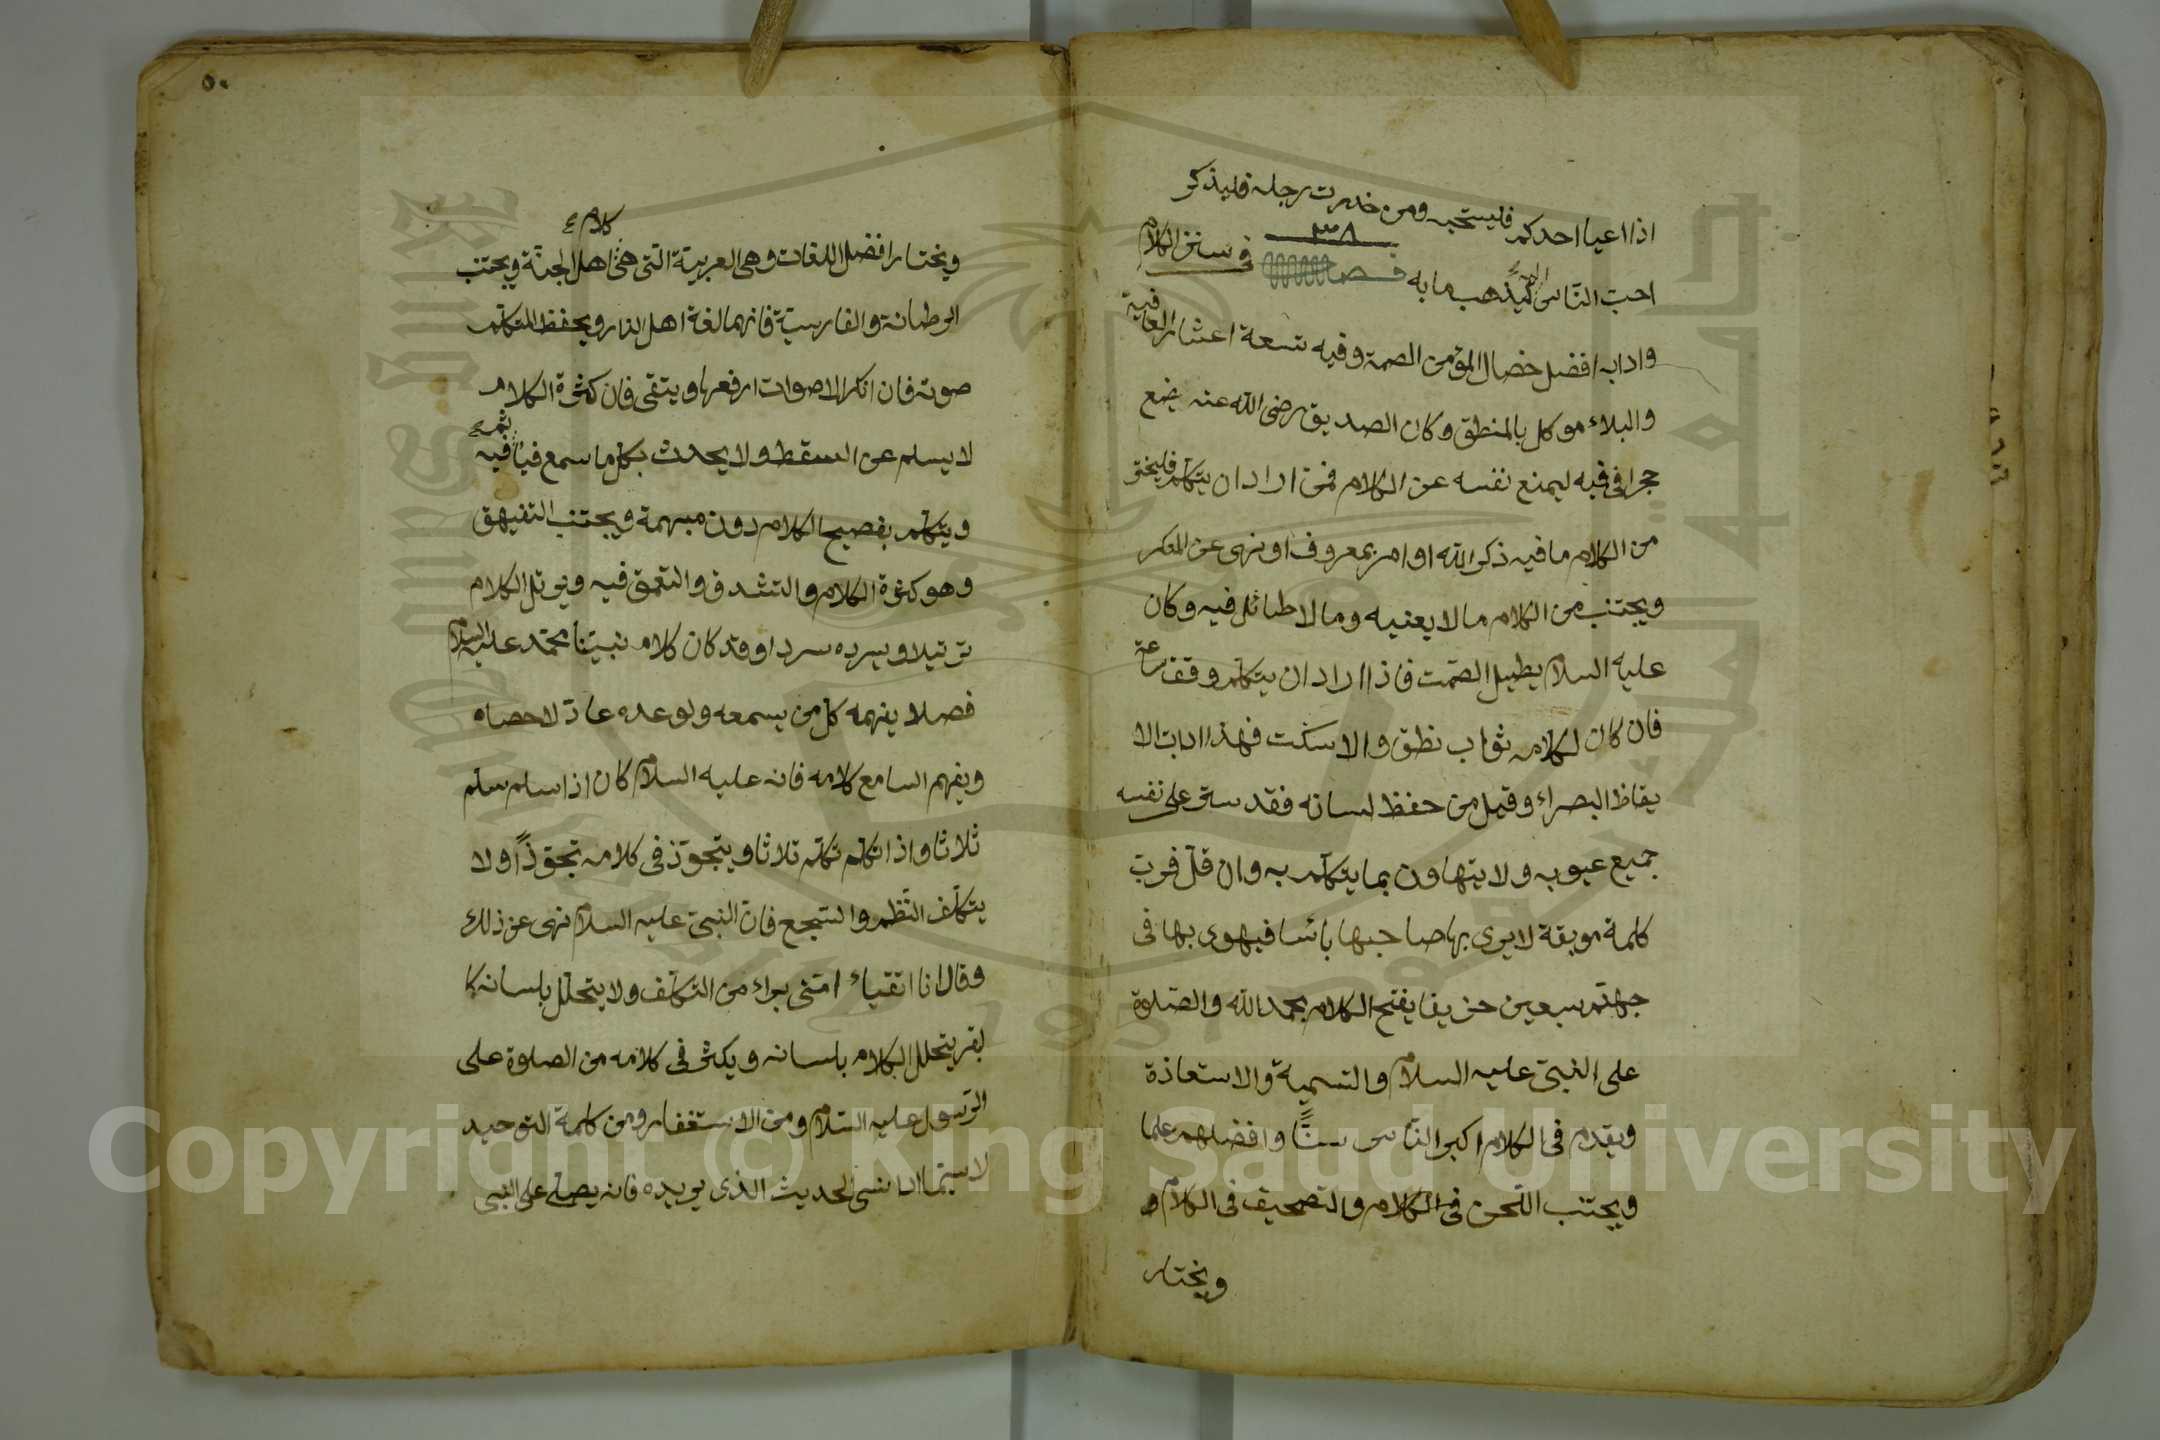 اذا اعيا احدكم فليستحبه ومن خدرت رجله فليذكر
احب الناس اليه يذهب ما به فصل ٣٨ في سنن الكلام
وادابه افضل خصال المؤمن الصمة وفيه تسعة اعشار العافية
والبلاء موكل بالمنطق وكان الصديق رضى الله عنه يضع
حجرا في فيه ليمنع نفسه عن الكلام فمن اراد ان يتكلم فليختر
من الكلام ما فيه ذكر الله او امر بمعروف او نهى عن المنكر
ويجتنب من الكلام ما لا يعنيه وما لا طائل فيه وكان
عليه السلام يطيل الصمت فاذا اراد ان يتكلم وقف ساعة
فان كان لكلامه ثواب نطق والا سكت فهذا اداب الا
يقاظ البصراء وقيل من حفظ لسانه فقد ستر على نفسه
جميع عيوبه ولا يتهاون بما يتكلم به وان قل فرب
كلمة موبقة لا يرى بها صاحبها بائسا فيهوى بها فى
جهنم سبعين خريفا يفتح الكلام بحمد الله والصلوة
على النبي عليه السلام والتسمية والاستعاذة
ويقدم فى الكلام اكبر الناس سنًا وافضلهم علما
ويجتنب اللحن فى الكلام والتصحيف فى الكلام و
ويختار
٥٠
ويختار افضل اللغات وهى العربية التى هى كلام اهل الجنة ويجتنب
الرطانة والفارسية فانهما لغة اهل النار ويحفظ المتكلم
صوته فان انكر الاصوات ارفعها ويتقى فان كثرة الكلام
لا يسلم عن السقط ولا يحدث بكل ما سمع فياثم فيه
ويتكلم بفصيح الكلام دون مبهمة ويجتنب التفيهق
وهو كثرة الكلام والتشدق والتعمق فيه ويرتل الكلام
ترتيلا ويسرده سردا وقد كان كلام نبينا محمد عليه السلام
فصلا يفهمه كل من يسمعه ولو عده عاد لاحصاه
ويفهم السامع كلامه فانه عليه السلام كان اذا سلم سلم
ثلاثا واذا تكلم تكلم ثلاثا ويتجوز فى كلامه تجوزًا ولا
يتكلف النظم والسجع فان النبي عليه السلام نهى عن ذلك
وقال انا اتقياء امتى براء من التكلف ولا يتخلل بلسانه كا
لبقر يتخلل الكلام بلسانه ويكثر فى كلامه من الصلوة على
الرسول عليه السلام ومن الاستغفار ومن كلمة التوحيد
لا سيما اذا نسى الحديث الذى يريده فانه يصلى على النبي
Copyright © King Saud University